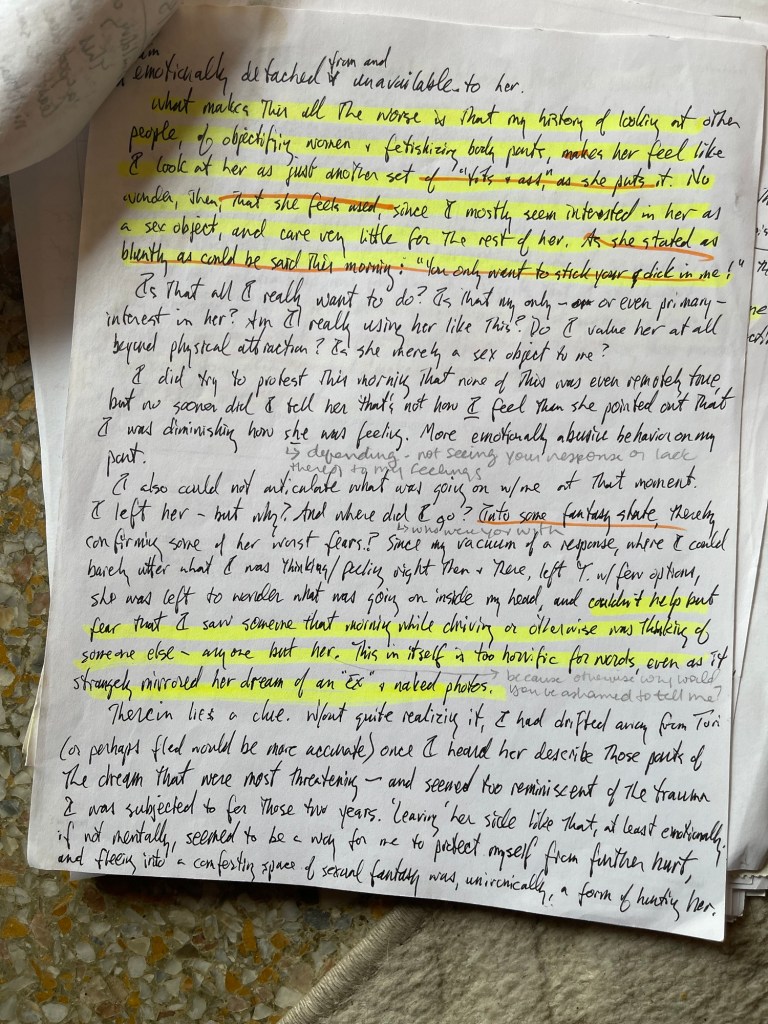 am
emotionally detached from and unavailable to her.
What makes this all the worse is that my history of looking at other
people, of objectifying women + fetishizing body parts, makes her feel like
I look at her as just another set of "tits + ass," as she puts it. No
wonder, then, that she feels used, since I mostly seem interested in her as
a sex object, and care very little for the rest of her. As she stated as
bluntly as could be said this morning: "You only want to stick your dick in me!"
Is that all I really want to do? Is that my only – or even primary –
interest in her? Am I really using her like this? Do I value her at all
beyond physical attraction? Is she merely a sex object to me?
I did try to protest this morning that none of this was even remotely true,
but no sooner did I tell her that's not how I feel than she pointed out that
I was diminishing how she was feeling. More emotionally abusive behavior on my
part.
↳ depending - not seeing your response or lack
thereof to my feelings
I also could not articulate what was going on w/me at that moment.
I left her – but why? And where did I go? Into some fantasy state, thereby
↳ who were you with
confirming some of her worst fears? Since my vacuum of a response, where I could
barely utter what I was thinking/feeling right then + there, left T. w/ few options,
she was left to wonder what was going on inside my head, and couldn't help but
fear that I saw someone that morning while driving or otherwise was thinking of
someone else – anyone but her. This in itself is too horrific for words, even as it
strangely mirrored her dream of an "Ex" + naked photos.
→ because otherwise why would
you be ashamed to tell me?
Therein lies a clue. W/out quite realizing it, I had drifted away from Turi
(or perhaps fled would be more accurate) once I heard her describe those parts of
the dream that were most threatening – and seemed too reminiscent of the trauma
I was subjected to for those two years. 'Leaving' her side like that, at least emotionally,
if not mentally, seemed to be a way for me to protect myself from further hurt,
and fleeing into a comforting space of sexual fantasy was, unironically, a form of hurting her.